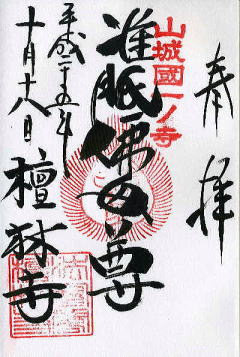 奉拝
山城國一ノ寺
准胝佛母尊
平成二十五年
十月十八日
檀林寺